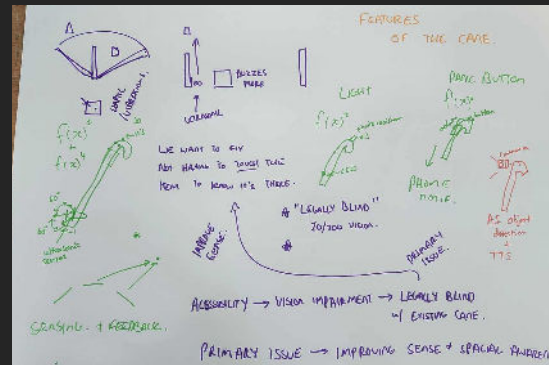 FEATURES
OF THE CANE.
A
D
HAPTIC
(VIBRATIONS)
BUZZES
MORE
ULTRASONIC
f(x)
f(x)
60°
ULTRASONIC
SENSOR
SENSING + FEEDBACK.
WE WANT TO FIX
NOT HAVING TO TOUCH THE
ITEM TO KNOW IT'S THERE.
LIGHT
f(x)
LED
PANIC BUTTON
f(x)
button
PHONE
AI object
detection
+
TTS
"LEGALLY BLIND"
20/200 VISION.
IMPROVE
SENSE.
PRIMARY
ISSUE.
ACESSIBILITY → VISION IMPAIRMENT → LEGALLY BLIND
w/ EXISTING CANE.
PRIMARY ISSUE → IMPROVING SENSE + SPACIAL AWAREN